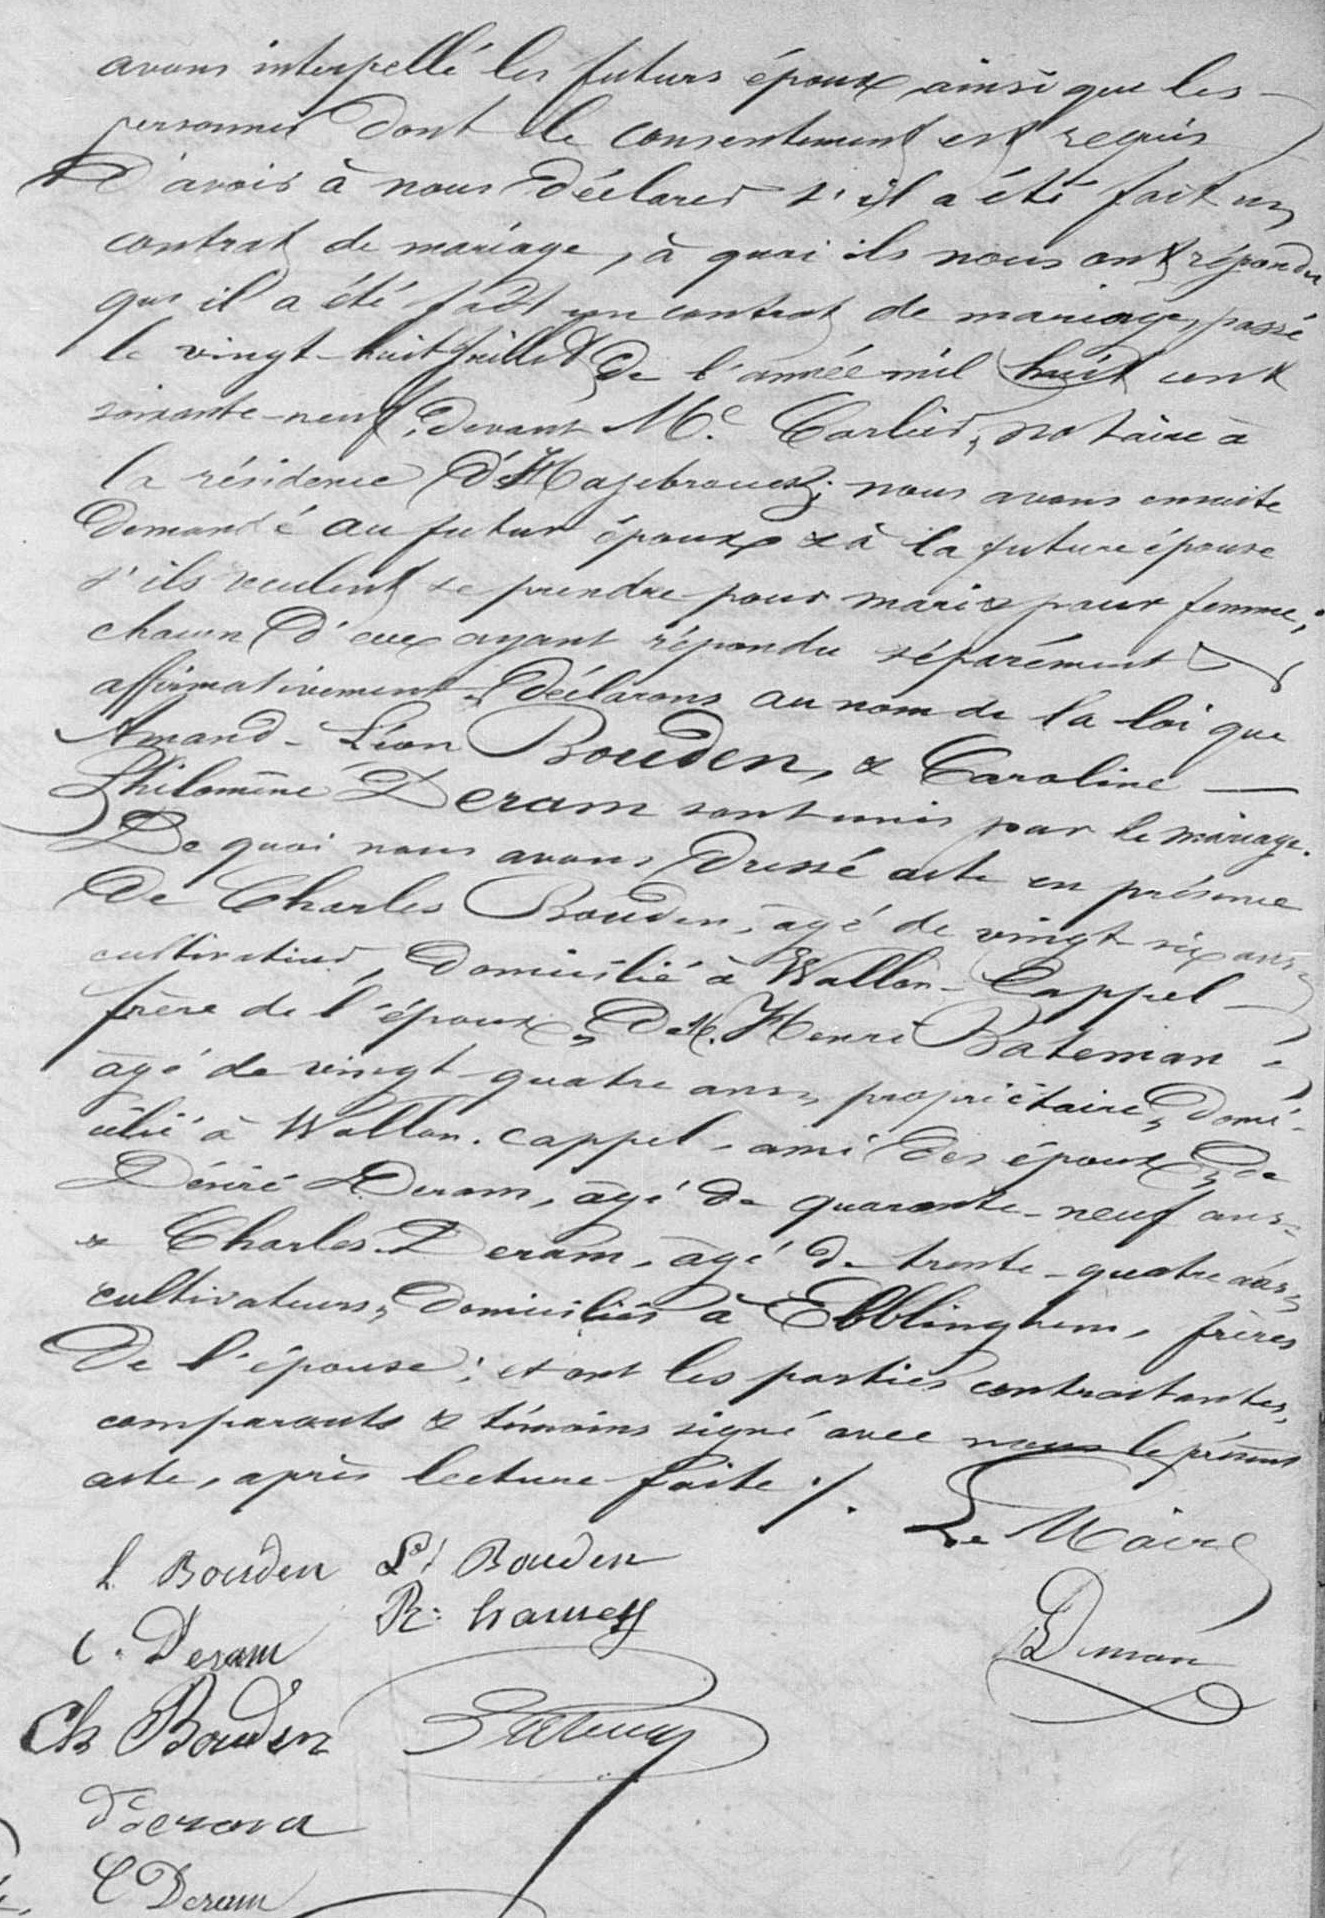 avons interpellé les futurs époux, ainsi que les
personnes dont le consentement est requis
d'avoir à nous déclarer s'il a été fait un
contrat de mariage, à quoi ils nous ont répondu
qu'il a été fait un contrat de mariage, passé
le vingt-huit juillet de l'année mil huit cent
soixante-neuf, devant Me. Carlier, notaire à
la résidence d'Hazebrouck; nous avons ensuite
demandé au futur époux & à la future épouse
s'ils veulent se prendre pour mari & pour femme;
chacun d'eux ayant répondu séparément &
affirmativement, déclarons au nom de la loi que
Amand-Léon Bouden, & Caroline
Philomène Deram sont unis par le mariage.
De quoi nous avons dressé acte en présence
de Charles Bouden, âgé de vingt six ans,
cultivateur, domicilié à Wallon-Cappel
frère de l'époux, de M. Henri Bateman
âgé de vingt quatre ans, propriétaire, domi-
cilié à Wallon-cappel, ami des époux, de
Désiré Deram, âgé de quarante-neuf ans
& Charles Deram, âgé de trente-quatre ans,
cultivateurs, domiciliés à Ebblinghem, frères
de l'épouse; et ont les parties contractantes,
comparants & témoins signé avec nous le présent
acte, après lecture faite ./.
Le Maire
L Bouden Ld Bouden
C. Deram
Ch Bouden
D Deram
C Deram